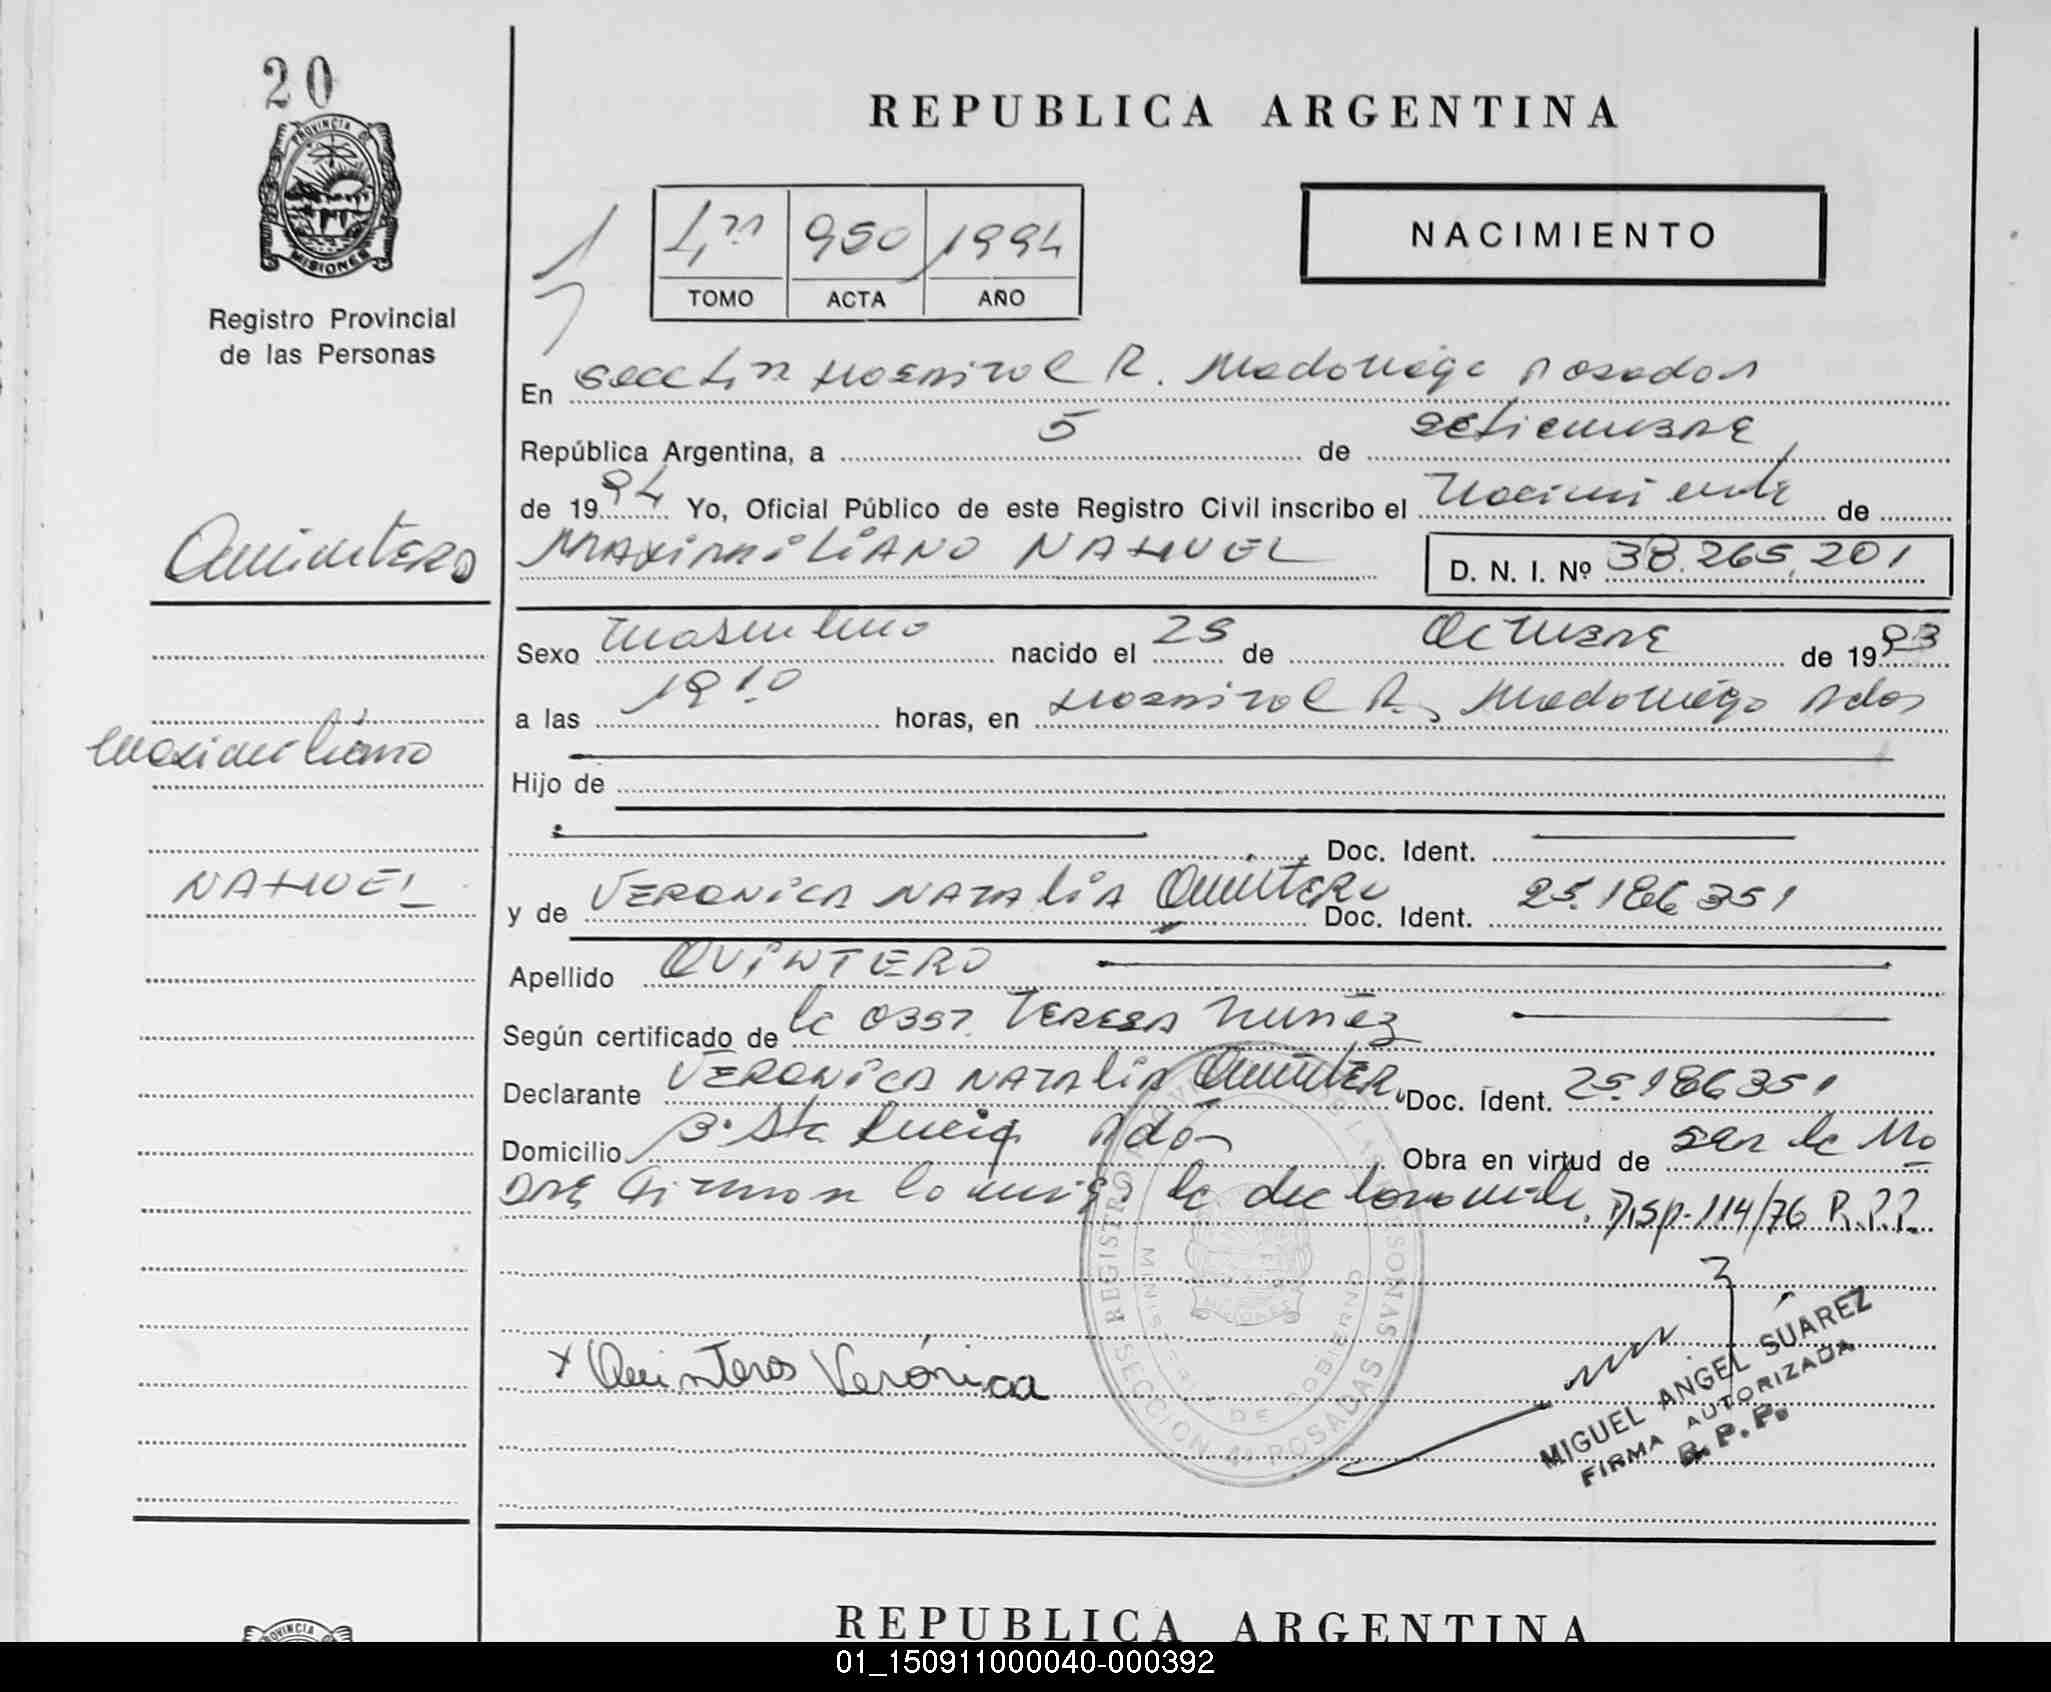 20
REPUBLICA ARGENTINA
PROVINCIA DE
MISIONES
Registro Provincial
de las Personas
950 1994
TOMO ACTA AÑO
NACIMIENTO
En Secc Hospital R. Madariaga Posadas
República Argentina, a 5 de setiembre,
de 1994 Yo, Oficial Público de este Registro Civil inscribo el Nacimiento de
Quintero
MAXIMILIANO NAHUEL D. N. I. Nº 38.265.201
Sexo Masculino nacido el de Octubre de 1993
a las 1910 horas, en Hospital R. Madariaga Pdas
Maximiliano
Hijo de
Doc. Ident.
NAHUEL
y de VERONICA NATALIA Quintero Doc. Ident. 25.186.351
Apellido QUINTERO
Según certificado de la Obst. TERESA Nuñez
Declarante VERONICA NATALIA QuinTERo Doc. Ident. 25.186351
Domicilio B. Sta Lucia Pdas Obra en virtud de ser la Ma
DRE Firman conmigo la declarante. Disp. 114/76 R.P.P.
x Quinteros Verónica
REGISTRO PROVINCIAL DE LAS PERSONAS
MINISTERIO DE GOBIERNO
SECCION POSADAS
MIGUEL ANGEL SUÁREZ
FIRMA AUTORIZADA
R.P.P.
PROVINCIA
REPUBLICA ARGENTINA
01_150911000040-000392